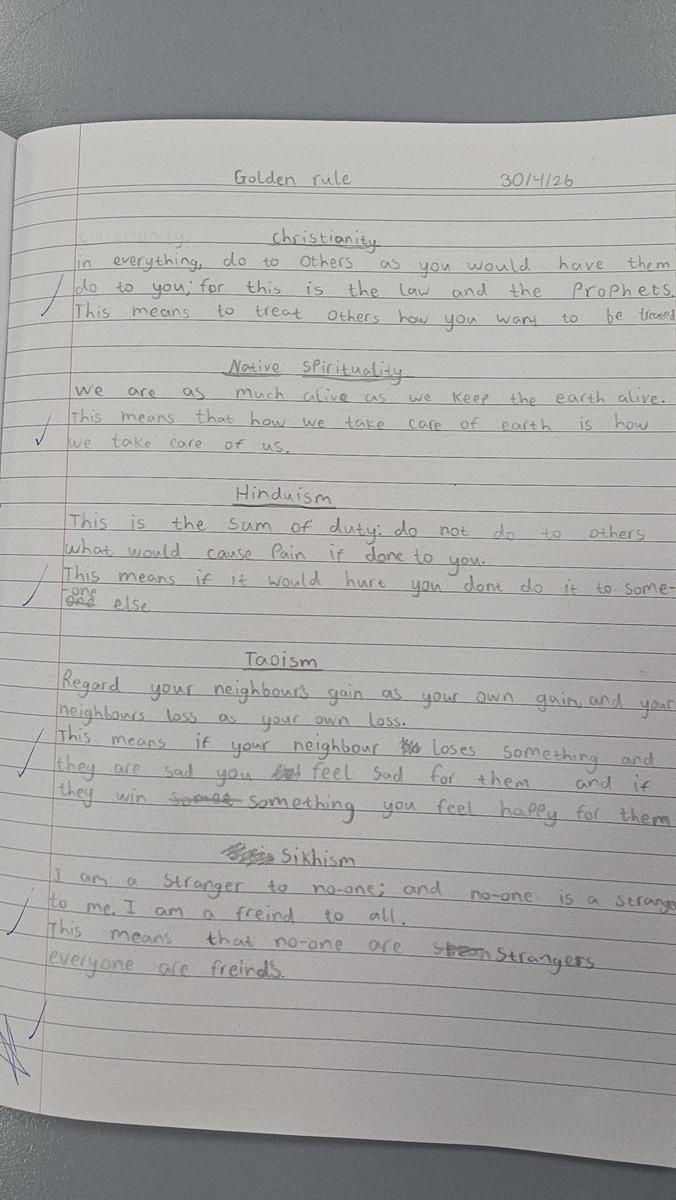 Golden rule 30/4/26
Christianity
in everything, do to others as you would have them
do to you; for this is the law and the Prophets.
This means to treat others how you want to be treated
Native Spirituality
we are as much alive as we keep the earth alive.
This means that how we take care of earth is how
we take care of us.
Hinduism
This is the sum of duty: do not do to others
what would cause Pain if done to you.
This means if it would hurt you dont do it to some-
-one else
Taoism
Regard your neighbour's gain as your own gain, and your
neighbours loss as your own loss.
This means if your neighbour loses something and
they are sad you feel sad for them and if
they win something you feel happy for them
Sikhism
I am a stranger to no-one; and no-one is a
to me. I am a freind to all.
This means that no-one are strangers
everyone are freinds.